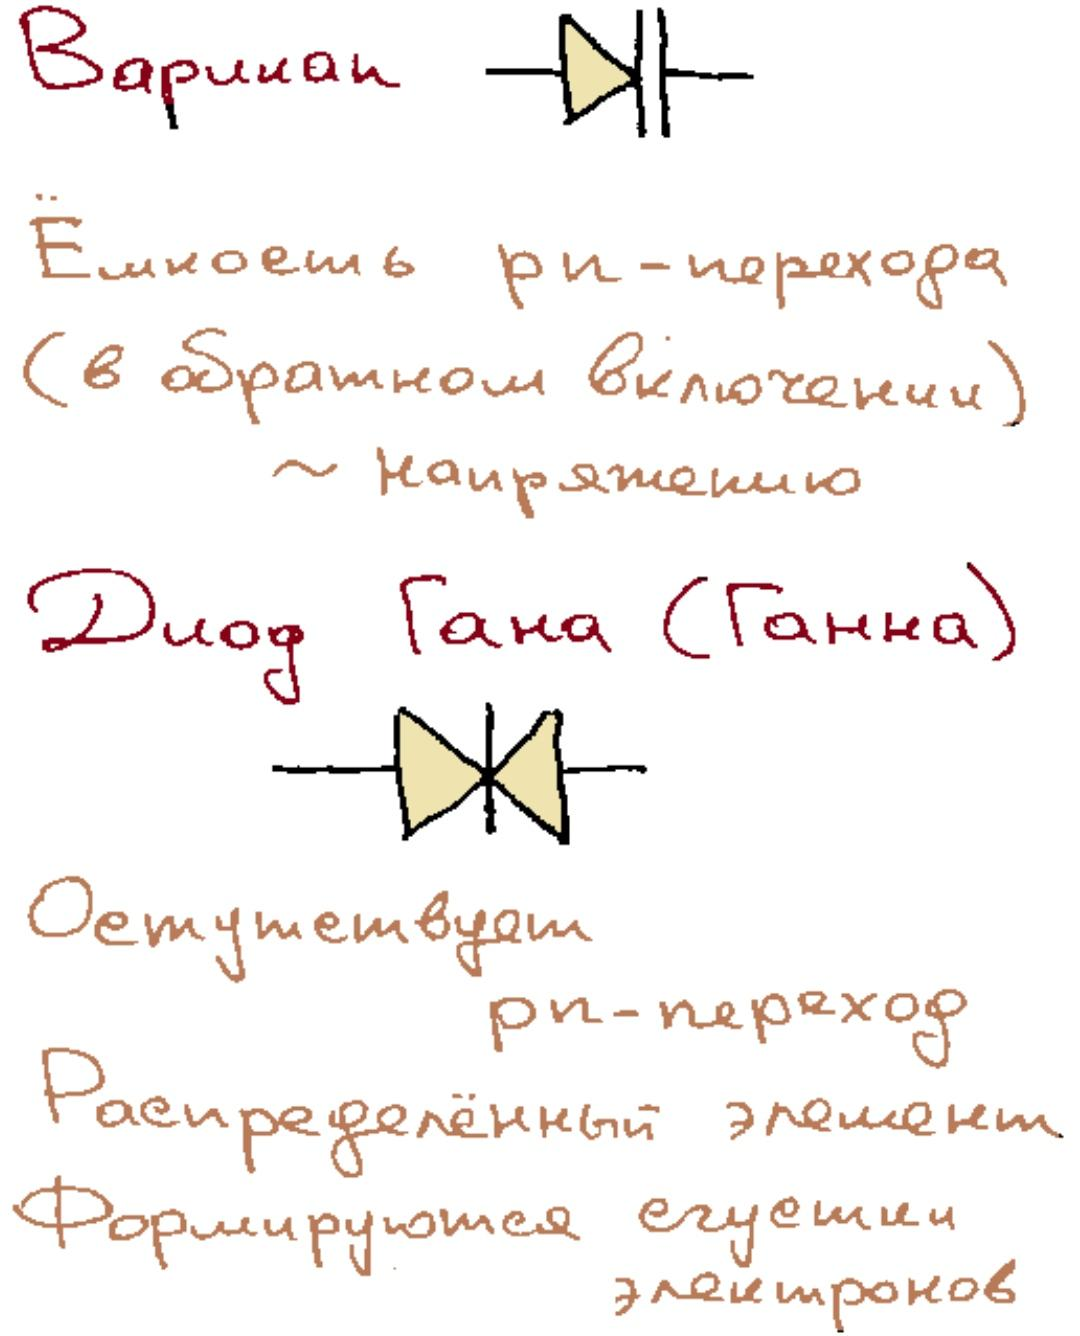 Варикап
Ёмкость pn-перехода
(в обратном включении)
~ напряжению
Диод Гана (Ганна)
Остутствует
pn-переход
Распределённый элемент
Формируются сгустки
электронов